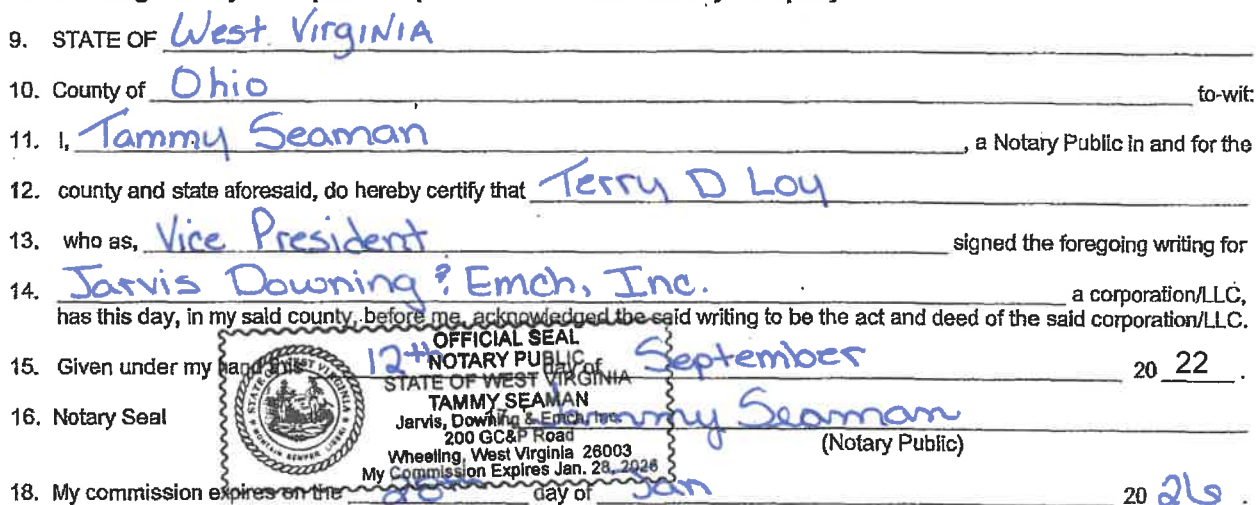 9. STATE OF West Virginia
10. County of Ohio to-wit:
11. I, Tammy Seaman, a Notary Public in and for the
12. county and state aforesaid, do hereby certify that Terry D Loy
13. who as, Vice President signed the foregoing writing for
14. Jarvis Downing & Emch, Inc. a corporation/LLC,
has this day, in my said county, before me, acknowledged the said writing to be the act and deed of the said corporation/LLC.
15. Given under my hand this 12th day of September 20 22.
OFFICIAL SEAL
NOTARY PUBLIC
STATE OF WEST VIRGINIA
TAMMY SEAMAN
Jarvis, Downing & Emch, Inc.
200 GC&P Road
Wheeling, West Virginia 26003
My Commission Expires Jan. 28, 2026
16. Notary Seal Tammy Seaman
(Notary Public)
18. My commission expires on the 28th day of Jan 20 26.